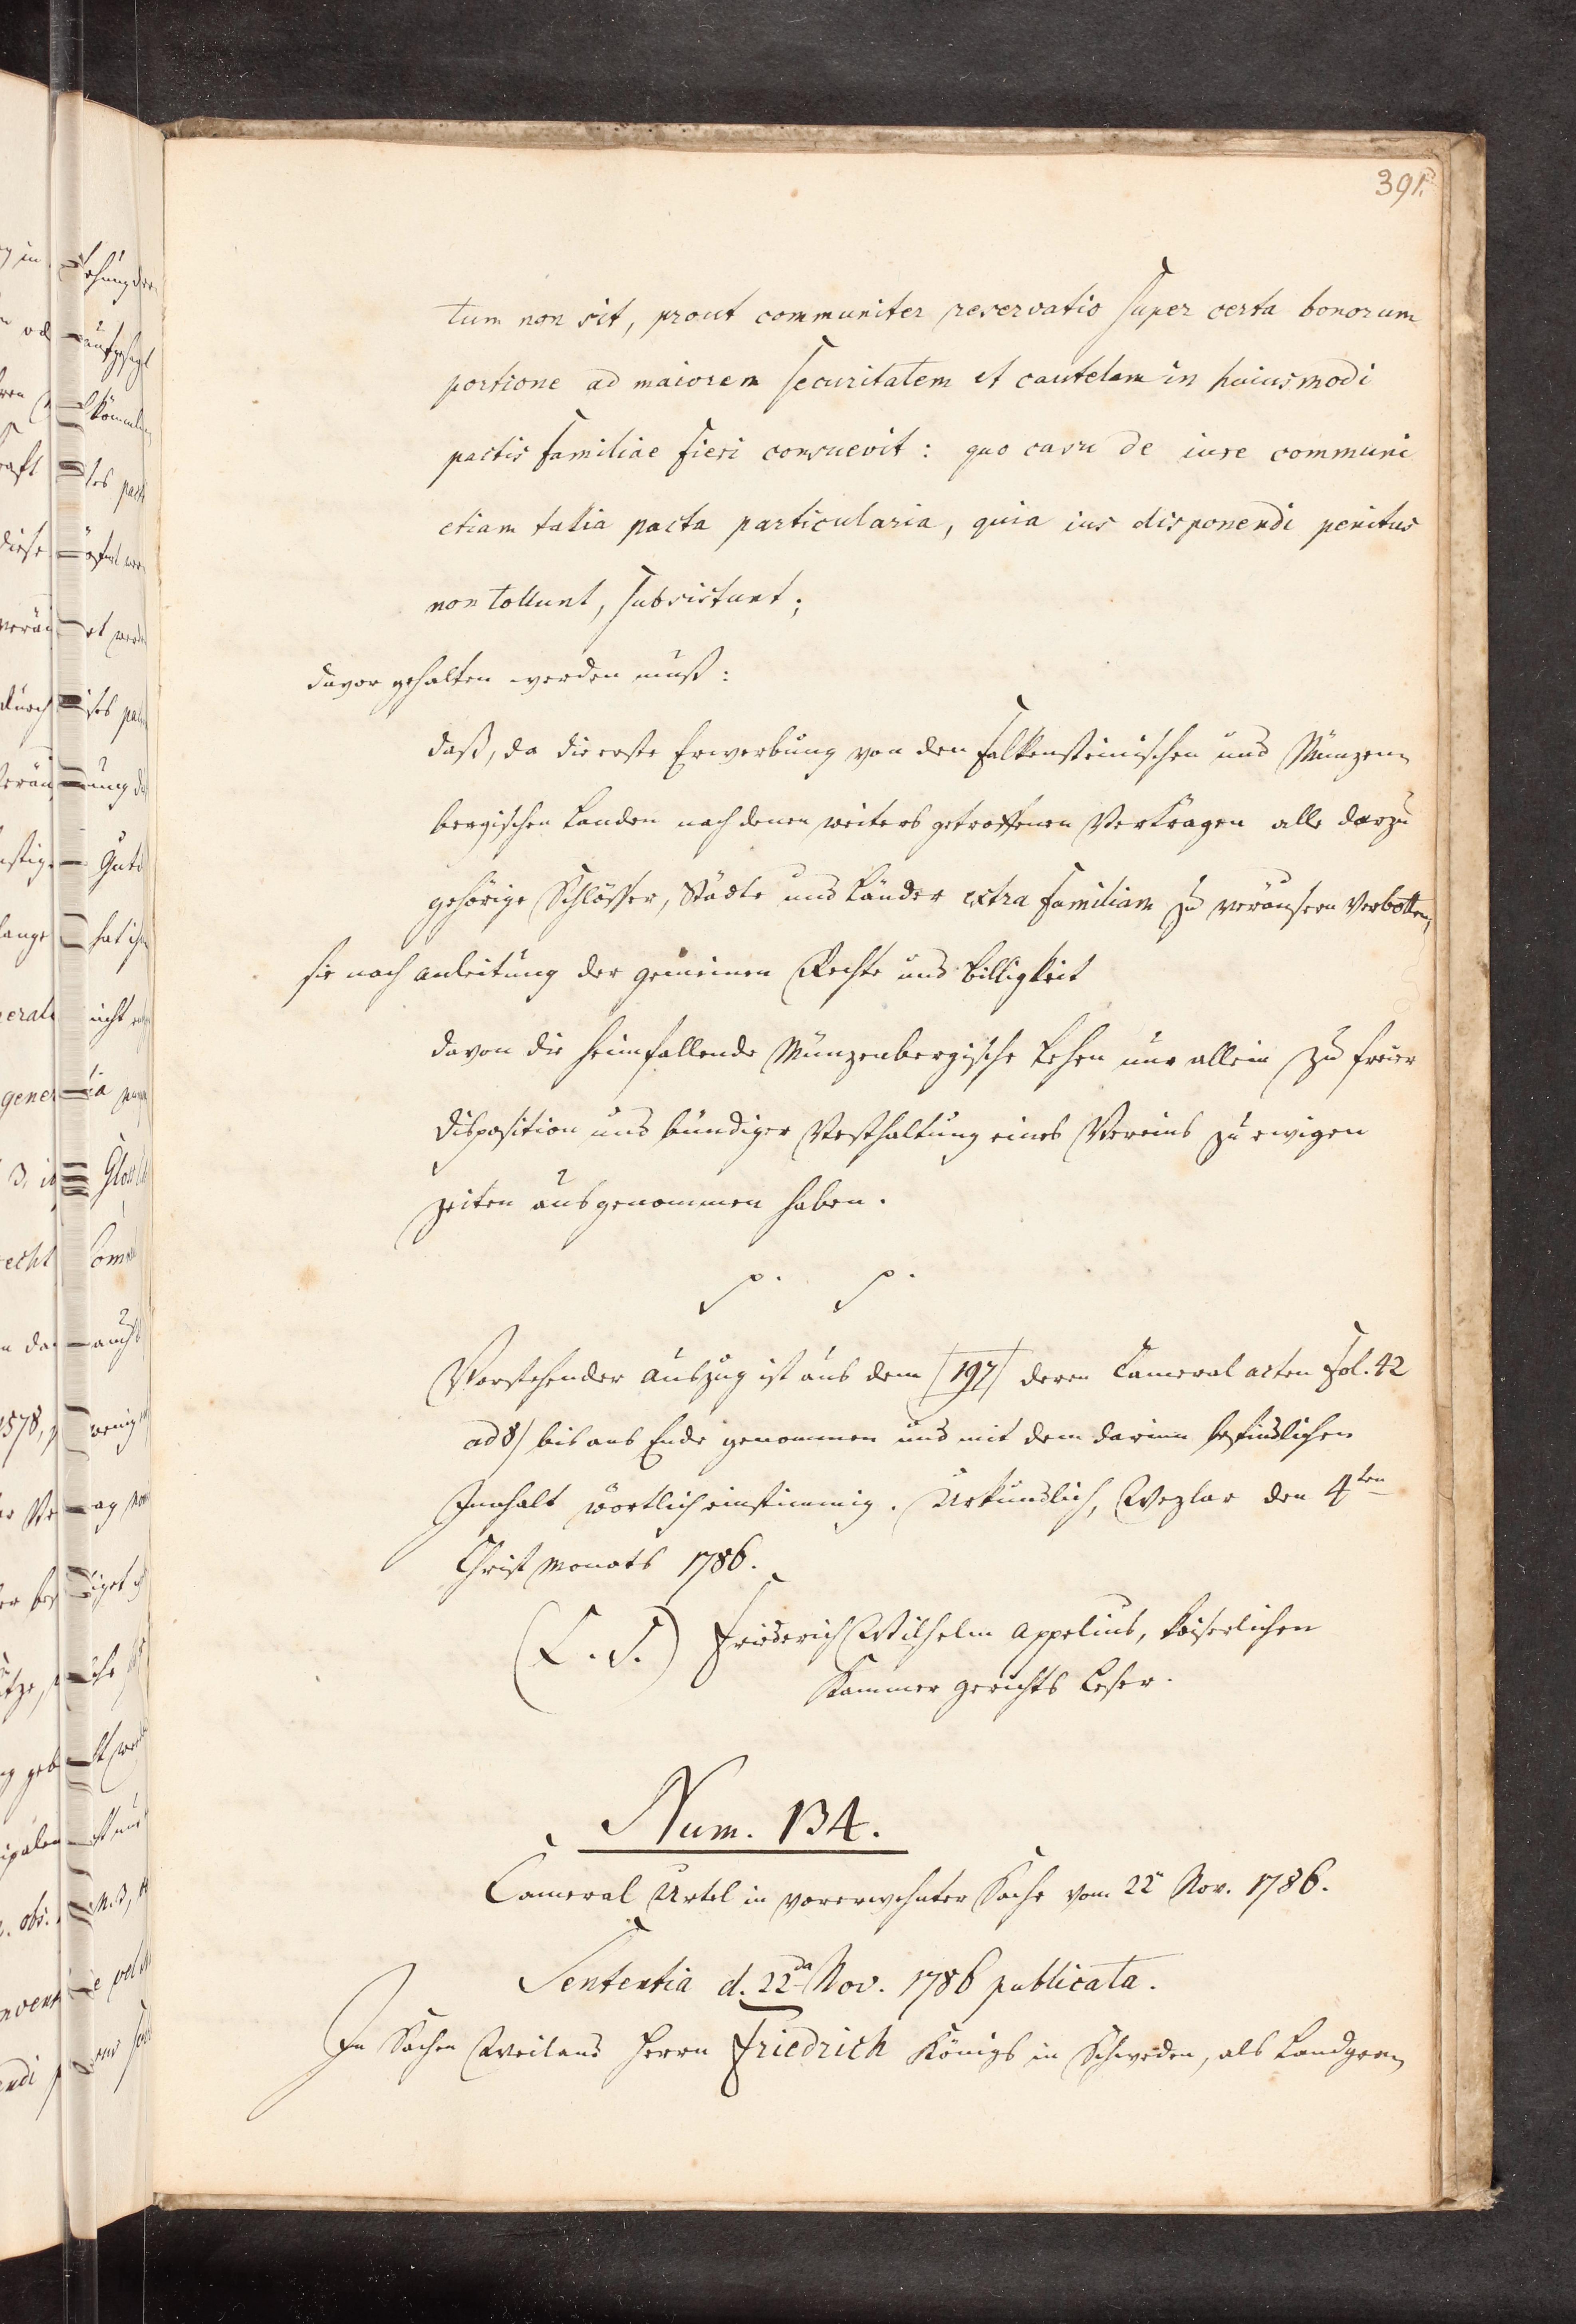 391.
tum non sit, prout communiter reservatio super certa bonorum
portione ad maiorem securitatem et cautelam in huiusmodi
pactis familiae fieri consuevit: quo casu de iure communi
etiam talia pacta particularia, quia ius disponendi penitus
non tollunt, subsistunt;
davor gehalten werden muß:
daß, da die erste Erwerbung von den Falkensteinischen und Münzen-
bergischen Landen nach denen weiters getroffenen Verträgen alle darzu
gehörige Schlösser, Städte und Länder extra familiam zu veräusern verbotten,
sie nach Anleitung der gemeinen Rechte und Billigkeit
davon die heimfallende Münzenbergische Lehen nur allein zu freier
Disposition und bündiger Vesthaltung eines Vereins zu ewigen
Zeiten ausgenommen haben.
p. p.
Vorstehender Auszug ist aus dem [197] deren Cameral acten Fol. 42
ad 8) bis ans Ende genommen und mit dem darinn befindlichen
Innhalt wörtlich einstimmig. Urkundlich, Wezlar den 4ten
Christmonats 1786.
(L. S.) Friederich Wilhelm Appelius, Kaiserlichen
Kammer gerichts Leser.
Num. 134.
Cameral Urtel in vorerwehnter Sache vom 22n Nov. 1786.
Sententia d. 22da Nov. 1786 publicata.
In Sachen Weiland Herrn Friedrich Königs in Schweden, als Landgra-